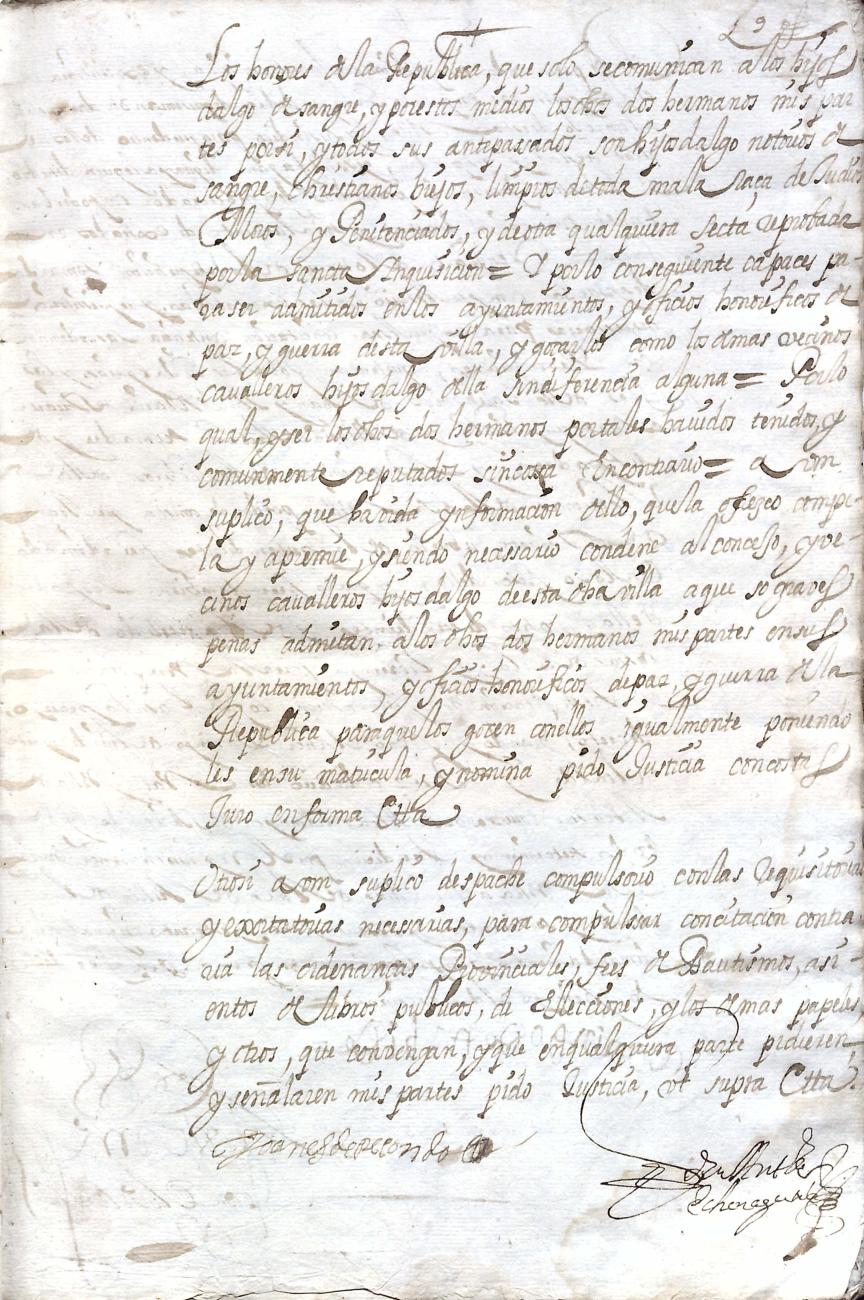 Los honores de la Republica, que solo se comunican a los hijos
dalgo de sangre, y por estos medios los dhos dos hermanos mis par
tes por si, y todos sus antepassados son hijosdalgo notorios de
sangre, christianos biejos, limpios de toda mala raça de Judios
Moros, y Penitenciados, y de otra qualquiera secta reprobada
por la sancta Inquisicion = Y por lo consiguiente capaces pa-
ra ser admitidos en los ayuntamientos, y oficios honorificos de
paz, y guerra desta villa, y goçarlos como los demas vecinos
cavalleros hijosdalgo della sin diferencia alguna = Por lo
qual, y ser los dhos dos hermanos por tales havidos tenidos, y
comunmente reputados sin cossa en contrario = a Vm
suplico, que havida ynformacion dello, que la ofrezco compe
la y apremie, y siendo necessario condene al concejo, y ve-
cinos cavalleros hijosdalgo de esta dha villa a que so graves
penas admitan a los dhos dos hermanos mis partes en sus
ayuntamientos, y oficios honorificos de paz, y guerra de la
Republica para que los gocen con ellos igualmente poniendo
les en su matricula, y nomina pido Justicia con costas
Juro en forma Ettª
Otrosi a Vm suplico despache compulsorio con las requisitorias
y exortatorias necessarias, para compulssar con citacion contra
ria las ordenanças Provinciales, fees de Bautismos, asi-
entos de libros publicos, de Elecciones, y los demas papeles,
y otros, que convengan, y que en qualquiera parte pidieren
y señalaren mis partes pido Justicia, ut supra Ettª
Joanes de Recondo
Echenagusia